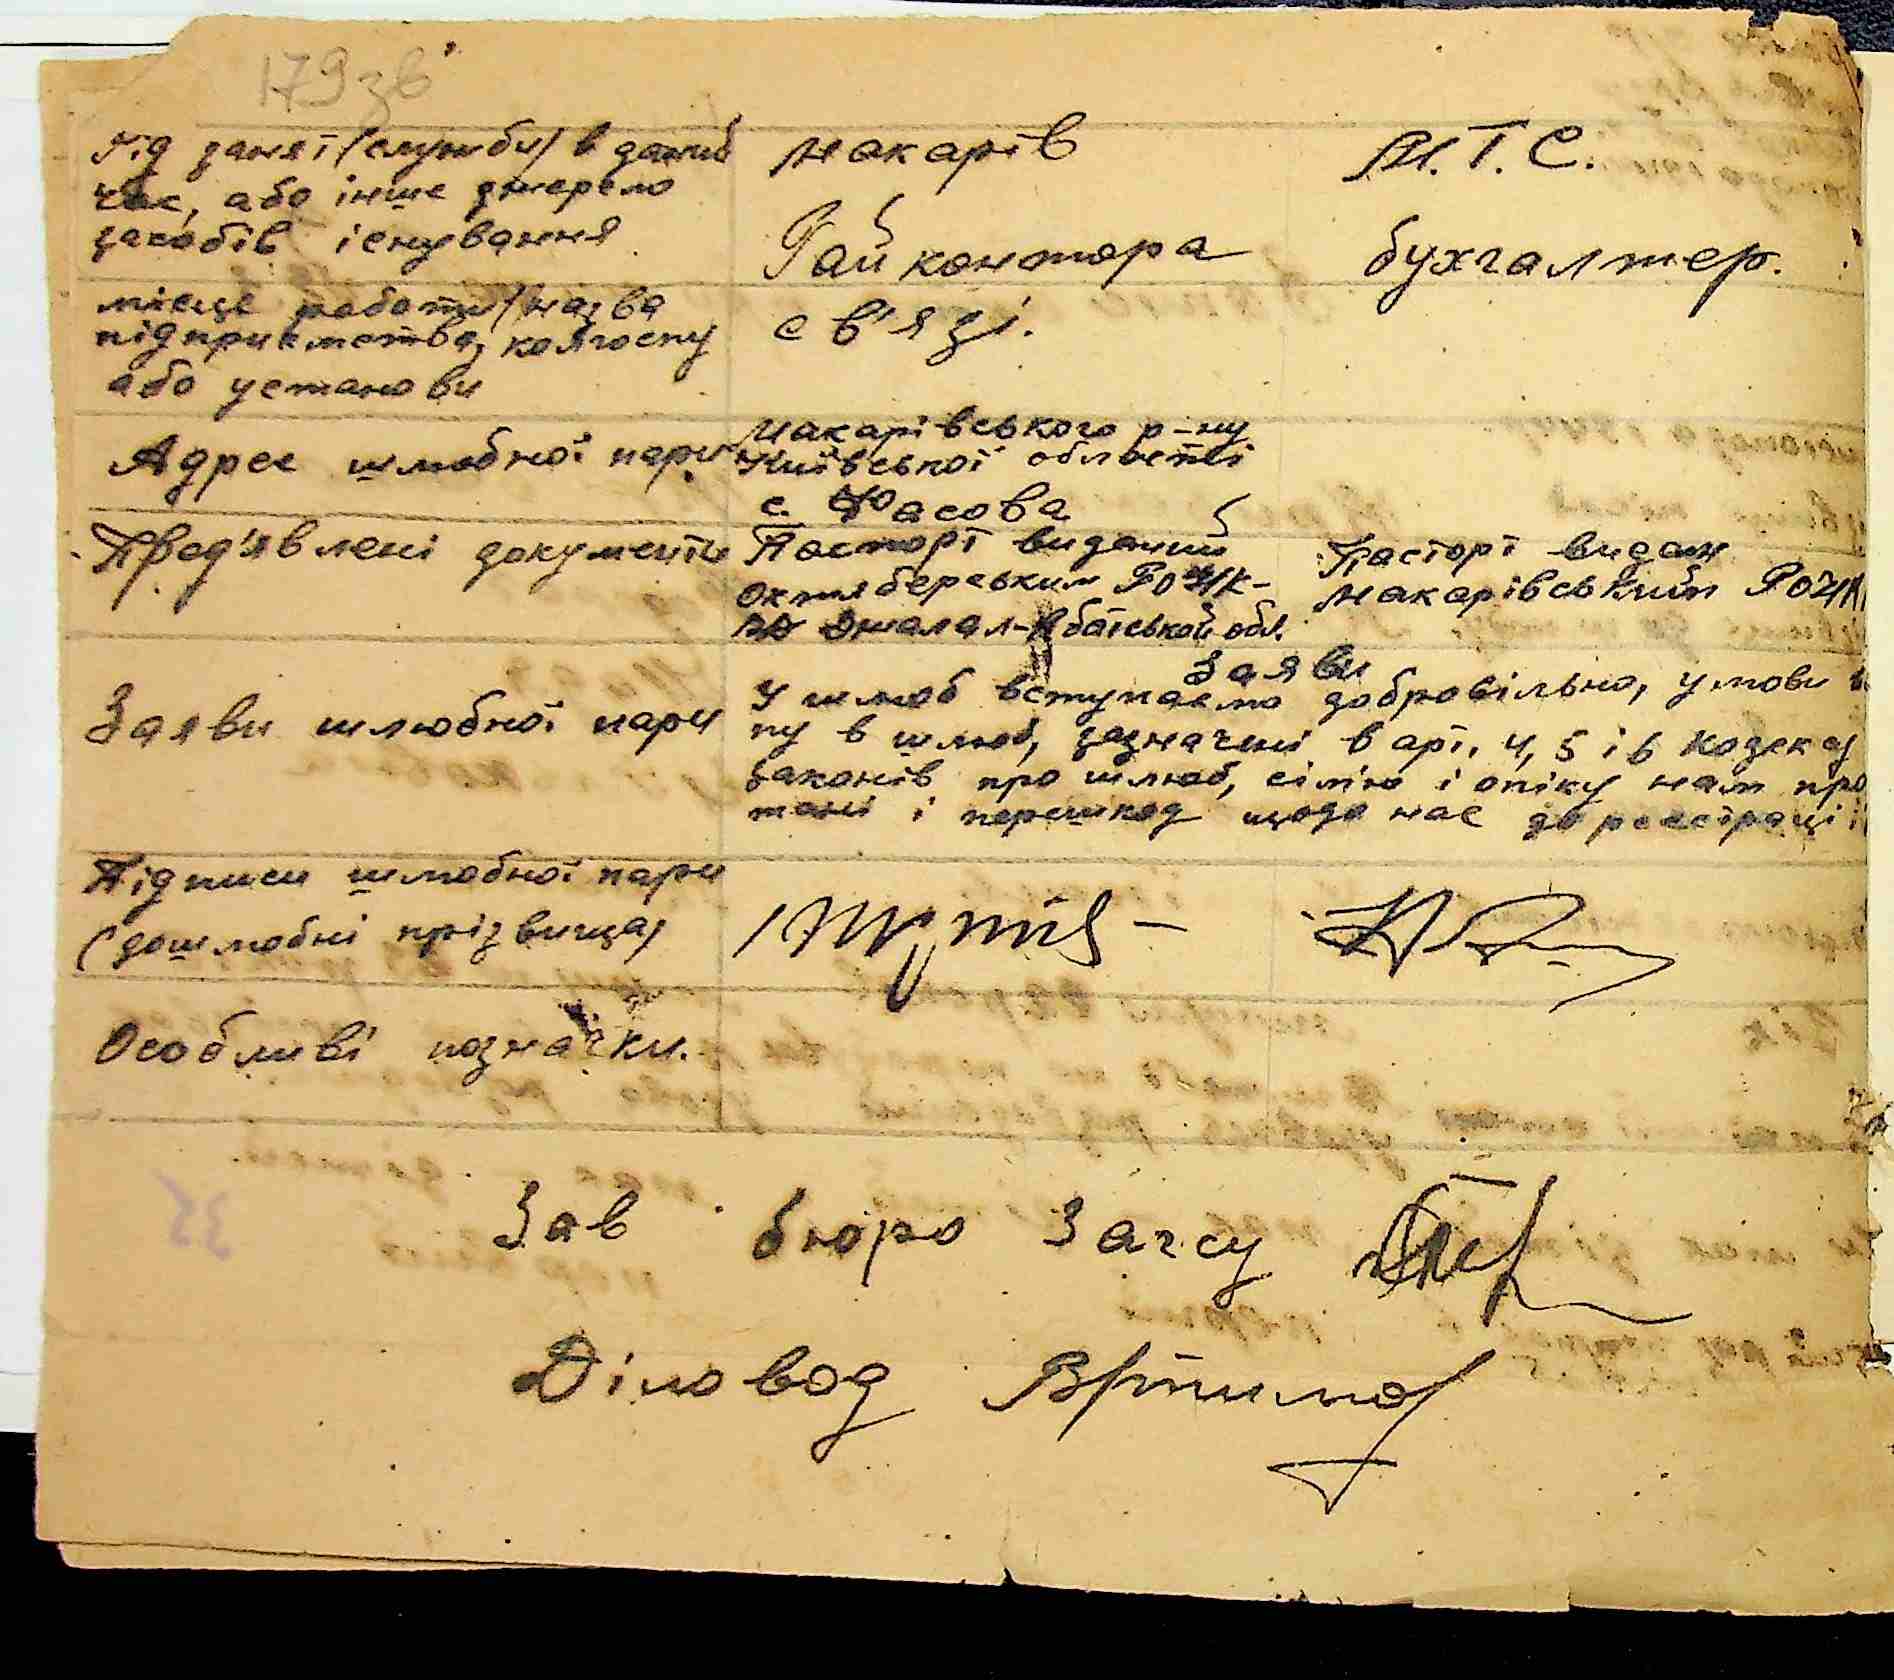 179зв
Рід заняї (служби) в даний
час, або інше джерело
засобів існування
Макарів
Райконтора
св'язі.
М.Т.С.
бухгалтер.
місце работи (назва
підприємства, колгоспу
або установи
Адрес шлюбної пари.
Макарівського р-ну
Київської області
с. Фасова
Пред'явлені документи
Паспорт виданий
Октяберським РО
Джалал-Абатської обл.
Паспорт видан
Макарівським РО
Заяви шлюбної пари
Заяви
У шлюб вступаємо добровільно, умови
пу в шлюб, зазначені в арт. 4, 5 і 6 кодексу
законів про шлюб, сім'ю і опіку нам про
тані і перешкод щодо нас до реєстрації
Підписи шлюбної пари
(дошлюбні прізвища)
Особливі позначки.
Зав бюро Загсу
Діловод